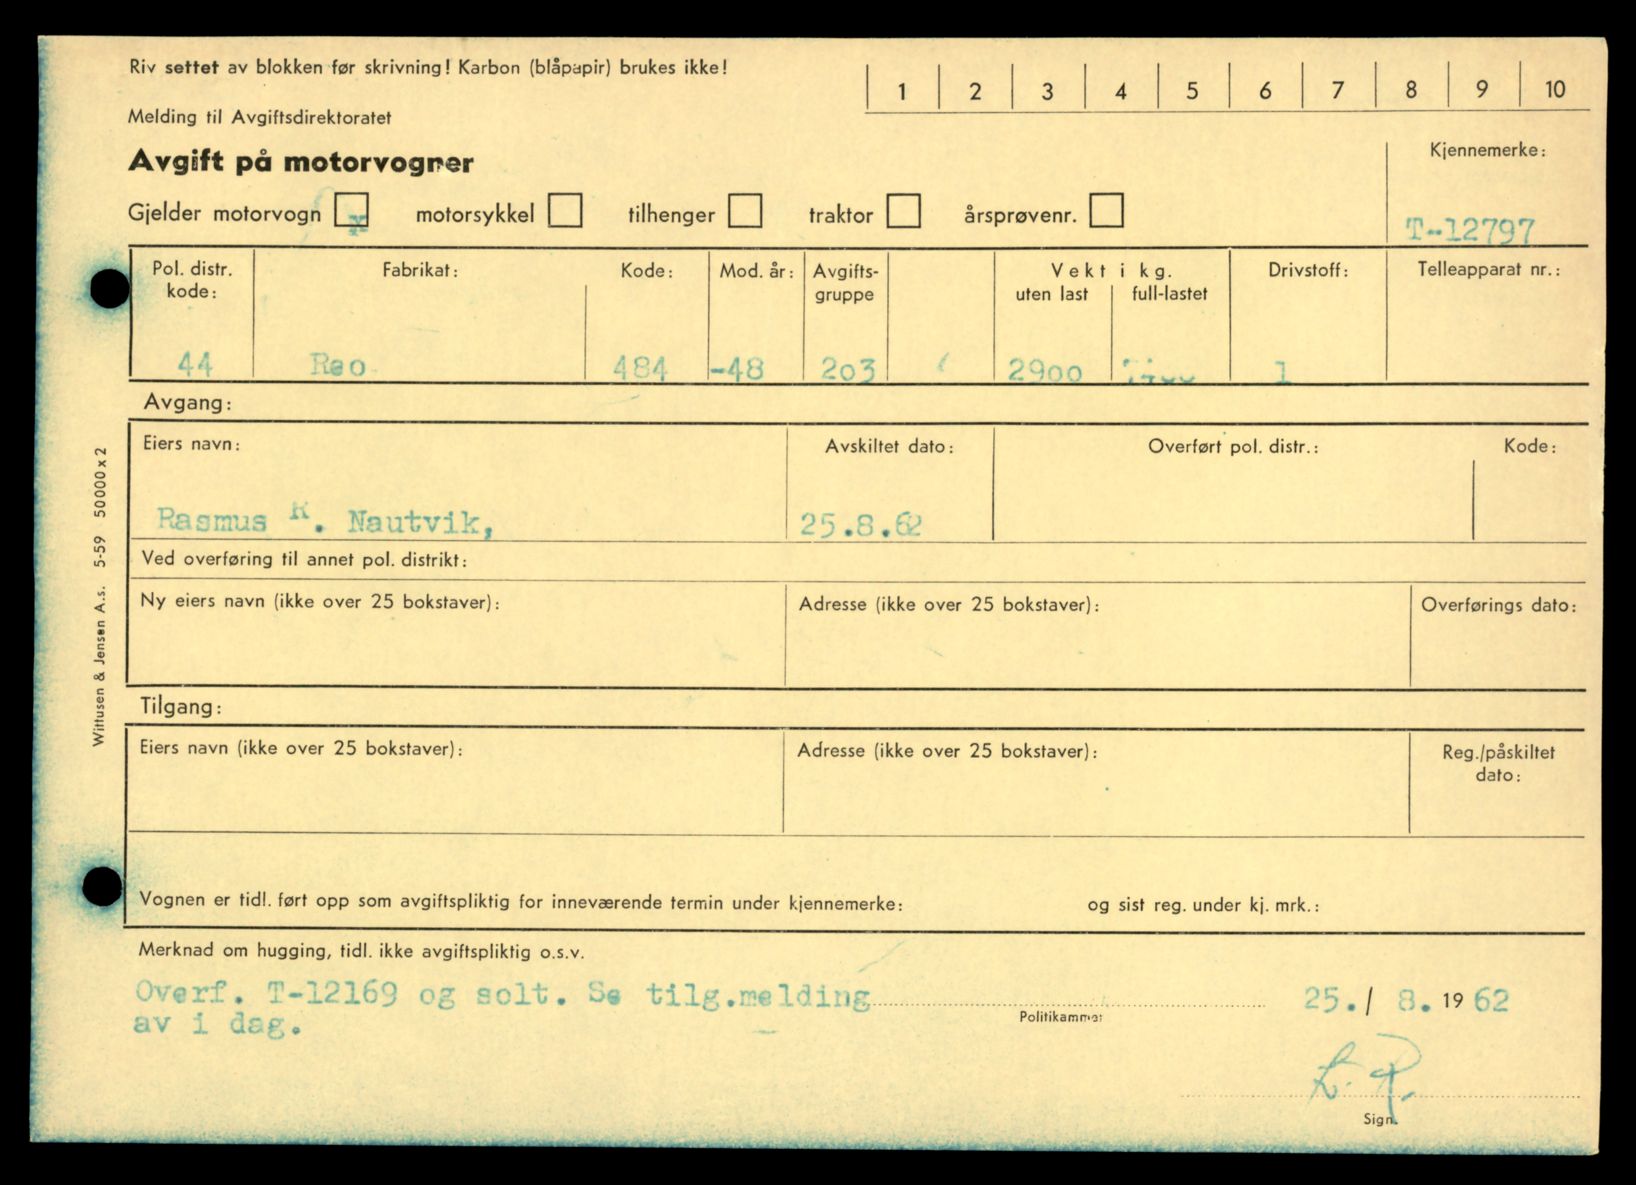 Riv settet av blokken før skrivning! Karbon (blåpapir) brukes ikke!
1 2 3 4 5 6 7 8 9 10
Melding til Avgiftsdirektoratet
Avgift på motorvogner
Kjennemerke:
Gjelder motorvogn x motorsykkel tilhenger traktor årsprøvenr.
T-12797
Pol. distr. kode: Fabrikat: Kode: Mod. år: Avgifts-gruppe Vekt i kg. uten last full-lastet Drivstoff: Telleapparat nr.:
44 Reo 484 -48 203 2900 1
Avgang:
Eiers navn: Avskiltet dato: Overført pol. distr.: Kode:
Rasmus K. Nautvik, 25.8.62
Ved overføring til annet pol. distrikt:
Ny eiers navn (ikke over 25 bokstaver): Adresse (ikke over 25 bokstaver): Overførings dato:
Tilgang:
Eiers navn (ikke over 25 bokstaver): Adresse (ikke over 25 bokstaver): Reg./påskiltet dato:
Vognen er tidl. ført opp som avgiftspliktig for inneværende termin under kjennemerke: og sist reg. under kj. mrk.:
Merknad om hugging, tidl. ikke avgiftspliktig o.s.v.
Overf. T-12169 og solt. Se tilg.melding 25./ 8. 1962
Politikammer
av i dag.
L. R.
Sign.
Wittusen & Jensen A.s. 5-59 50000 x 2